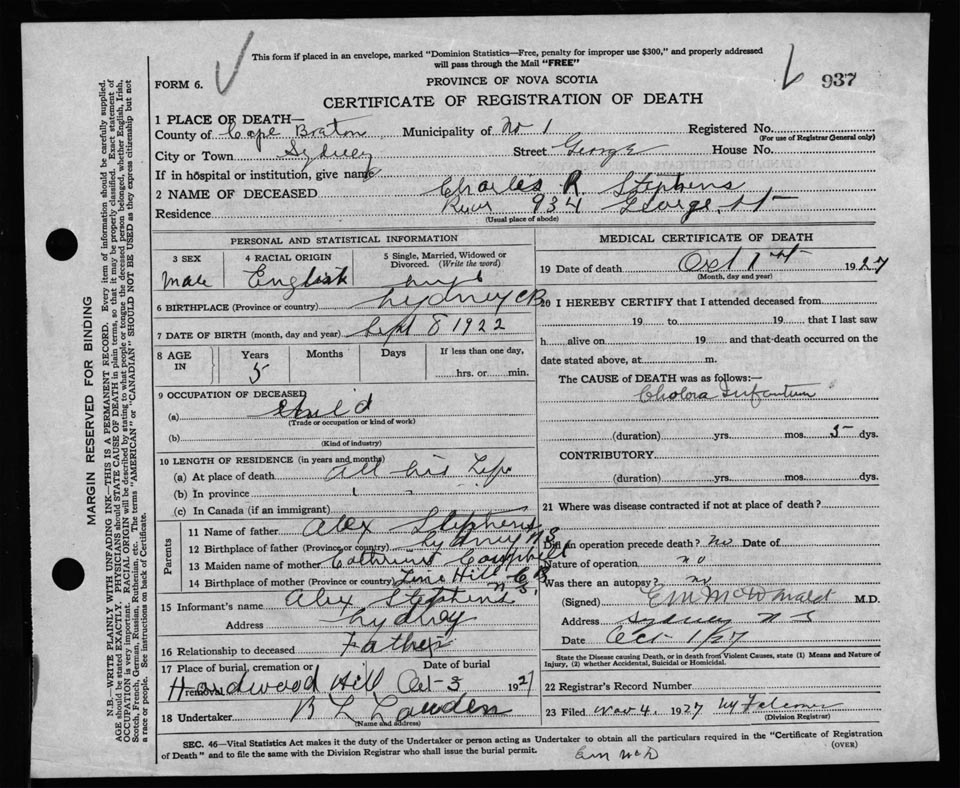 This form if placed in an envelope, marked "Dominion Statistics—Free, penalty for improper use $300," and properly addressed
will pass through the Mail "FREE"
937
FORM 6.
PROVINCE OF NOVA SCOTIA
CERTIFICATE OF REGISTRATION OF DEATH
1 PLACE OF DEATH—
County of Cape Breton Municipality of No 1 Registered No.
(For use of Registrar General only)
City or Town Sydney Street George House No.
If in hospital or institution, give name
2 NAME OF DECEASED Charles R Stephens
Residence Rear 934 George St
(Usual place of abode)
PERSONAL AND STATISTICAL INFORMATION
3 SEX 4 RACIAL ORIGIN 5 Single, Married, Widowed or
Divorced. (Write the word)
Male English
6 BIRTHPLACE (Province or country) Sydney CB
7 DATE OF BIRTH (month, day and year) Sept 8 1922
8 AGE IN Years Months Days If less than one day,
5 hrs. or min.
9 OCCUPATION OF DECEASED
(a) Child
(Trade or occupation or kind of work)
(b)
(Kind of industry)
10 LENGTH OF RESIDENCE (in years and months)
(a) At place of death All his Life
(b) In province
(c) In Canada (if an immigrant)
Parents
11 Name of father Alex Stephens
12 Birthplace of father (Province or country) Sydney N.S.
13 Maiden name of mother Catherine Campbell
14 Birthplace of mother (Province or country) Lime Hill C.B.
N.S.
15 Informant's name Alex Stephens
Address Sydney
16 Relationship to deceased Father
17 Place of burial, cremation or removal Date of burial
Hardwood Hill Oct 3 1927
18 Undertaker
(Name and address)
MEDICAL CERTIFICATE OF DEATH
19 Date of death Oct 1st 1927
(Month, day and year)
20 I HEREBY CERTIFY that I attended deceased from
19 to 19 that I last saw
h alive on 19 and that death occurred on the
date stated above, at m.
The CAUSE of DEATH was as follows:—
Cholera Infantum
(duration) yrs. mos. 5 dys.
CONTRIBUTORY
(duration) yrs. mos. dys.
21 Where was disease contracted if not at place of death?
Did an operation precede death? no Date of
Nature of operation no
Was there an autopsy? no
(Signed) E M McDonald M.D.
Address Sydney N S
Date Oct 1/27
State the Disease causing Death, or in death from Violent Causes, state (1) Means and Nature of
Injury, (2) whether Accidental, Suicidal or Homicidal.
22 Registrar's Record Number
23 Filed Nov 4, 1927
(Division Registrar)
SEC. 46—Vital Statistics Act makes it the duty of the Undertaker or person acting as Undertaker to obtain all the particulars required in the "Certificate of Registration
of Death" and to file the same with the Division Registrar who shall issue the burial permit.
(OVER)
Em McD
MARGIN RESERVED FOR BINDING
N.B.—WRITE PLAINLY WITH UNFADING INK—THIS IS A PERMANENT RECORD. Every item of information should be carefully supplied.
AGE should be stated EXACTLY. PHYSICIANS should STATE CAUSE OF DEATH in plain terms, so that it may be properly classified. Exact statement of
OCCUPATION is very important. RACIAL ORIGIN will be described by stating to what people or tongue the deceased person belonged, whether English, Irish,
Scotch, French, German, Russian, Ruthenian, etc. The terms "AMERICAN" or "CANADIAN" SHOULD NOT BE USED as they express citizenship but not
a race or people. See instructions on back of Certificate.